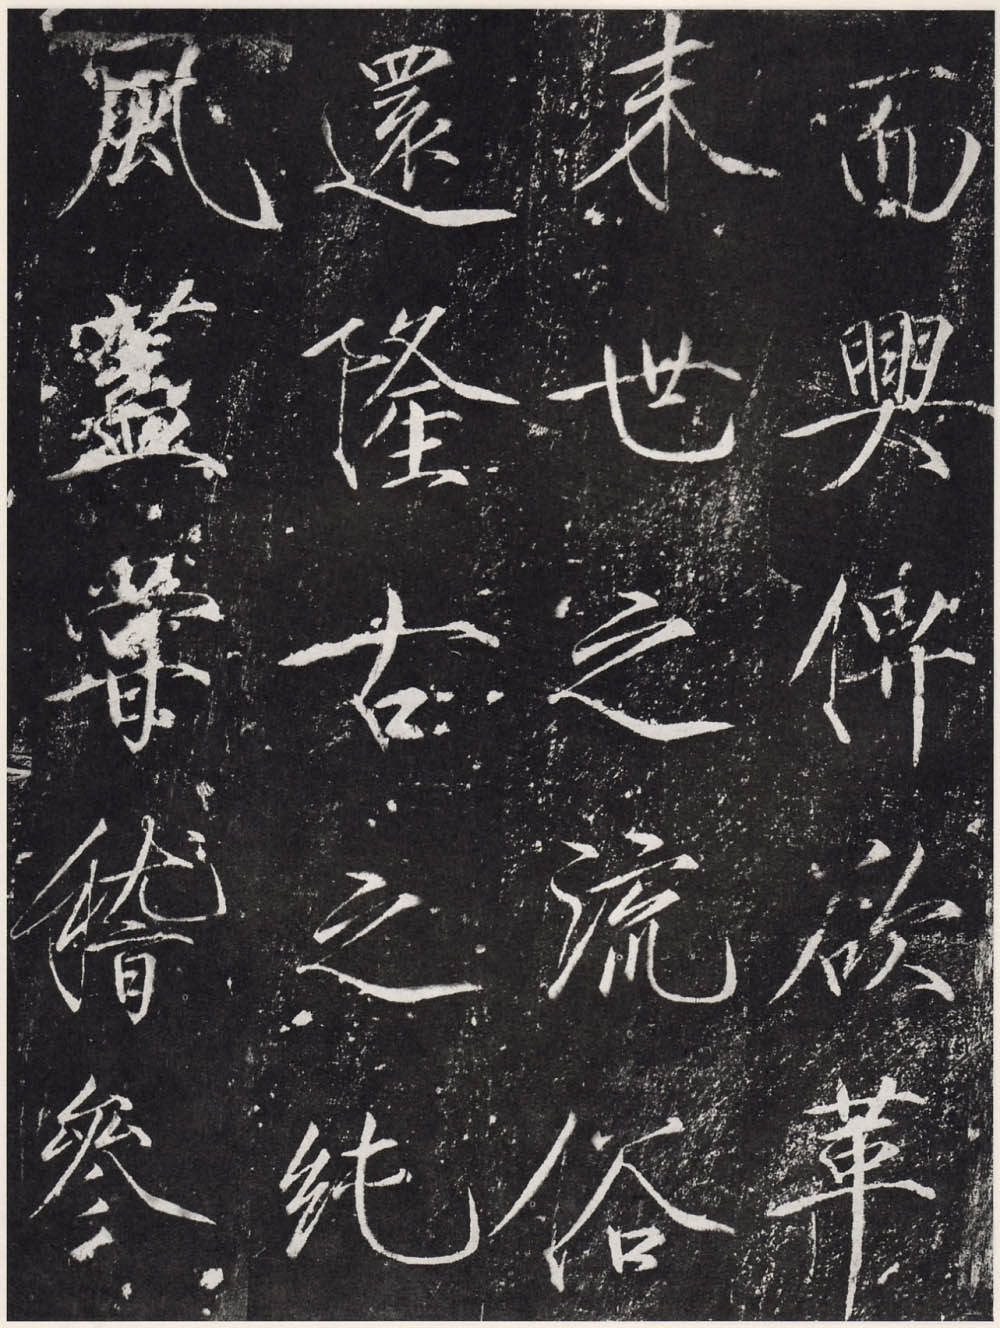 而興俾欲革
末世之流俗
還隆古之純
風蓋嘗稽參